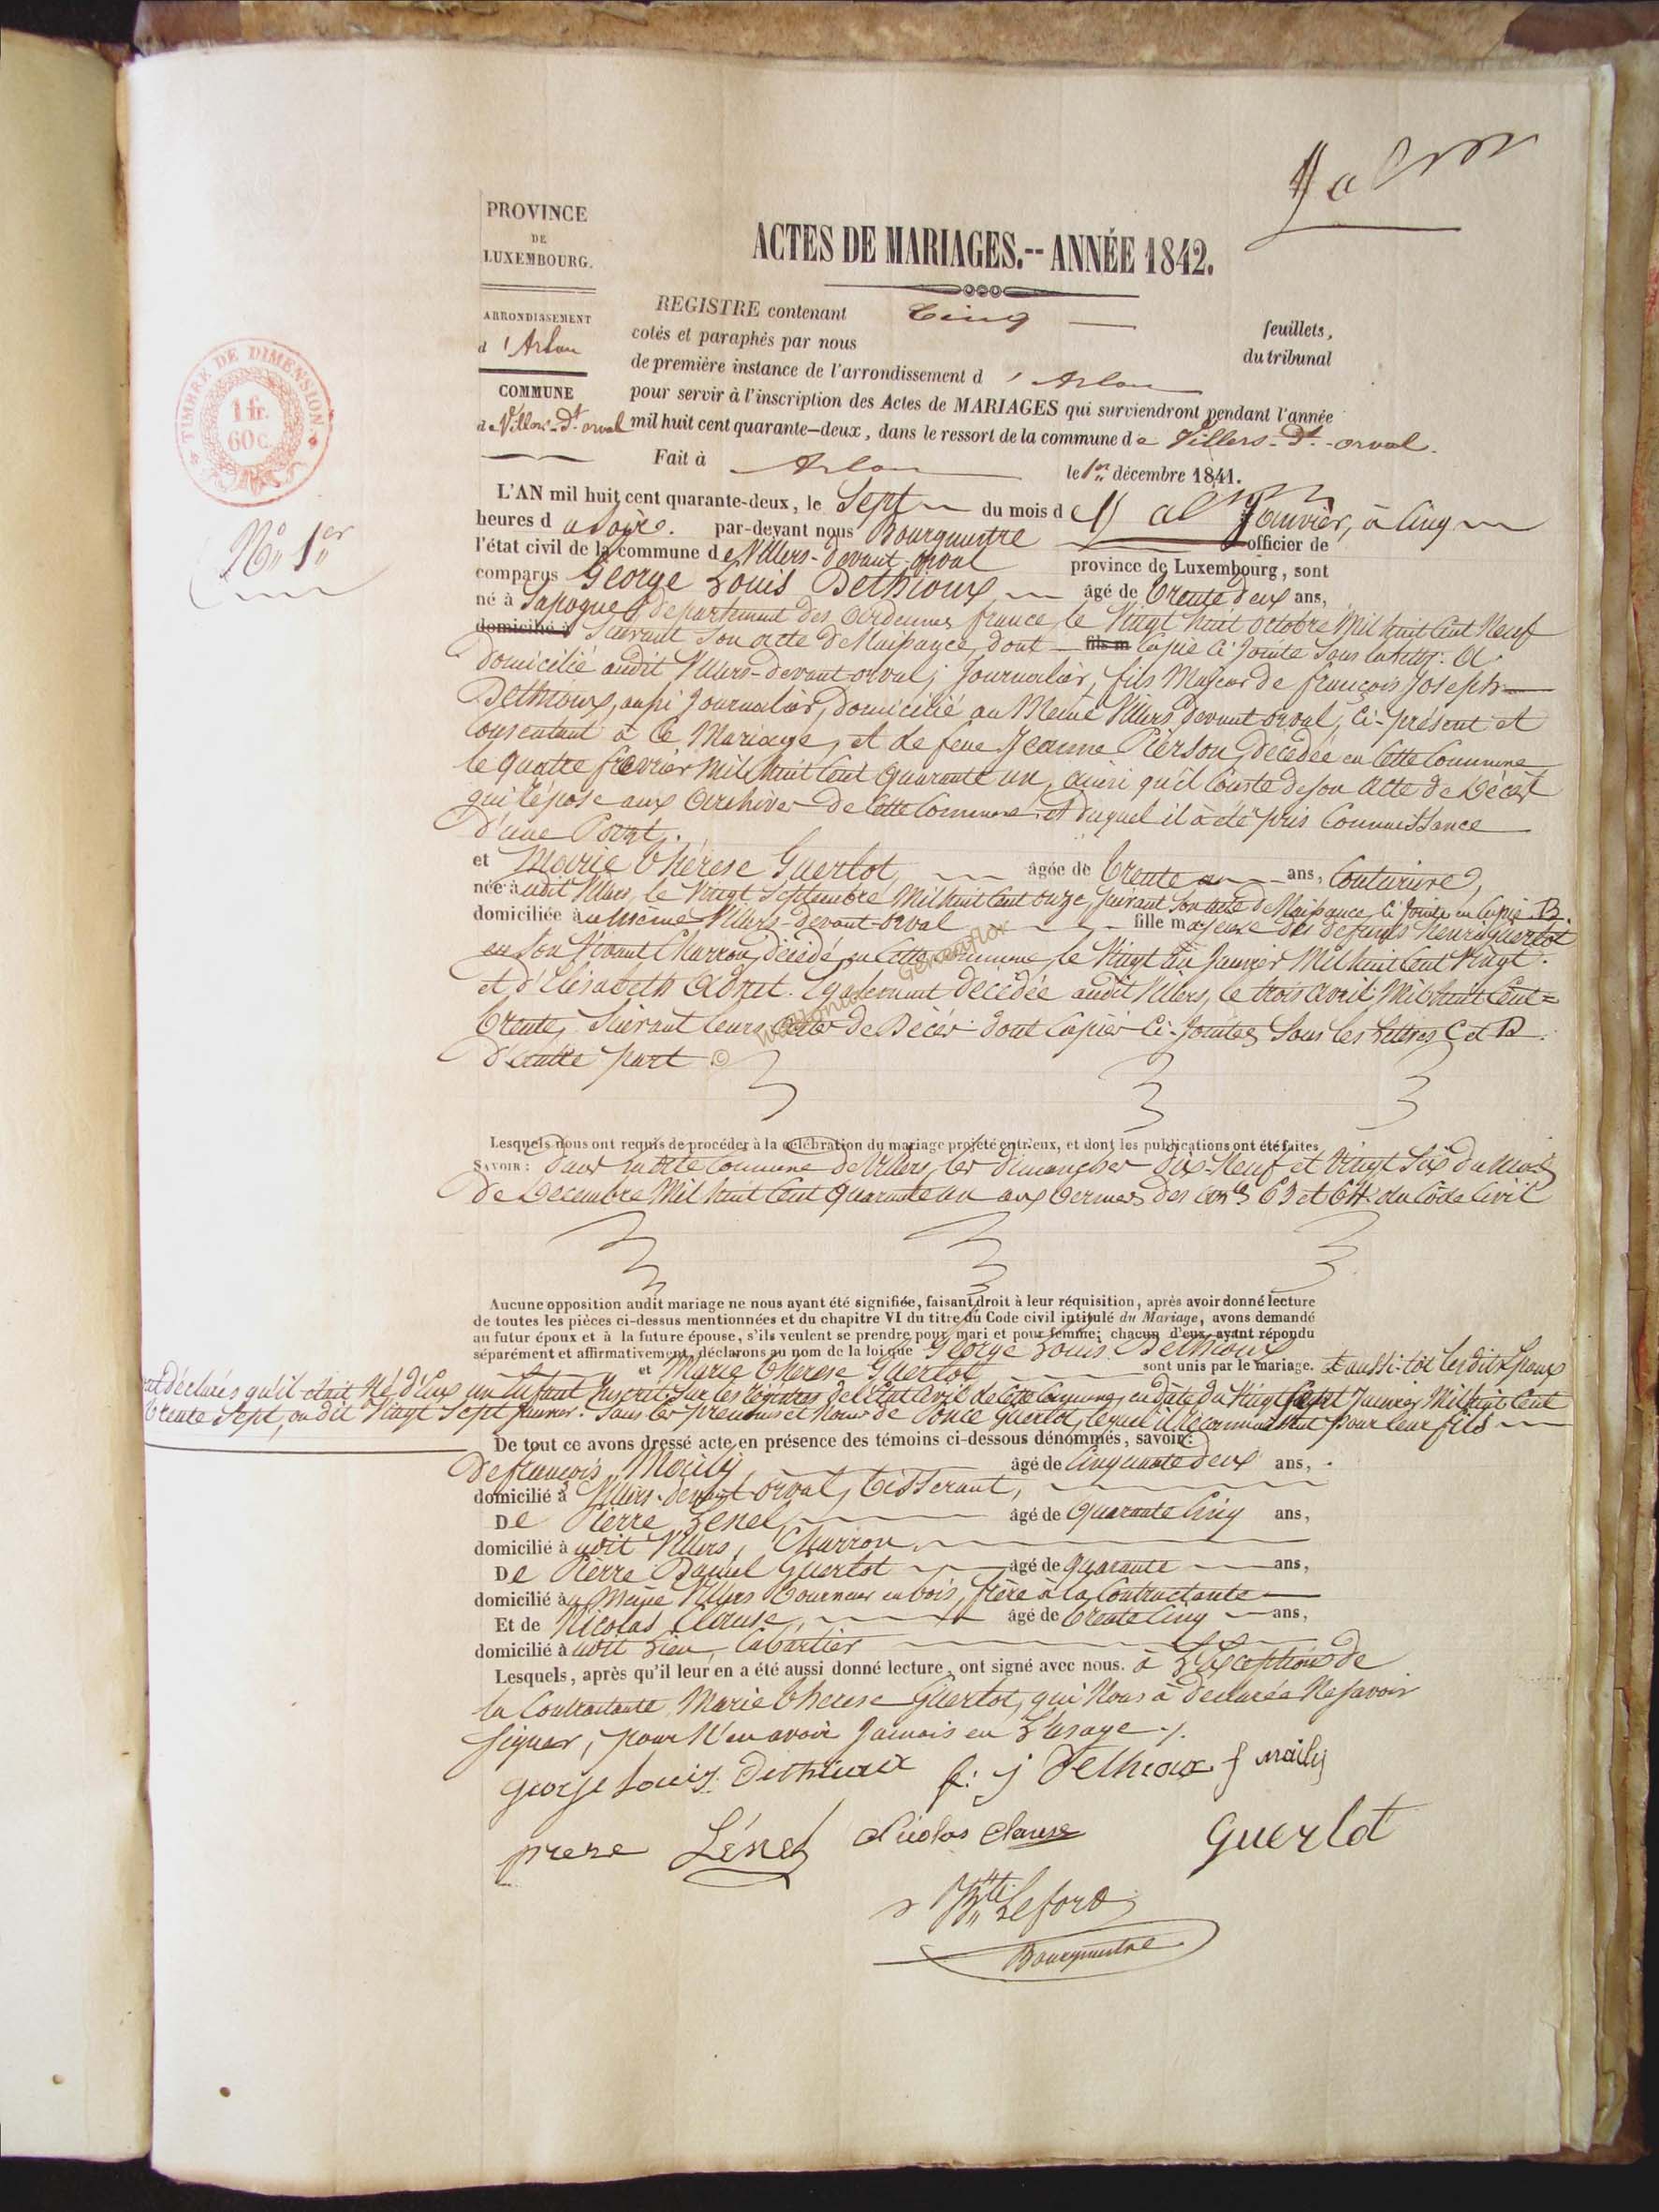 PROVINCE
DE
LUXEMBOURG.
ARRONDISSEMENT
d'Arlon
COMMUNE
de Villers-Dt-orval
TIMBRE DE DIMENSION
1 fr.
60 c.
N° 1er
ACTES DE MARIAGES.-- ANNÉE 1842.
REGISTRE contenant Cinq feuillets,
cotés et paraphés par nous du tribunal
de première instance de l'arrondissement d'Arlon
pour servir à l'inscription des Actes de MARIAGES qui surviendront pendant l'année
mil huit cent quarante-deux, dans le ressort de la commune de Villers-Dt-orval.
Fait à Arlon le 1er décembre 1841.
L'AN mil huit cent quarante-deux, le Sept du mois de Janvier, à Cinq
heures du Soir. par-devant nous Bourgmestre officier de
l'état civil de la commune de Villers-devant-orval province de Luxembourg, sont
comparus George Louis Dethioux âgé de Trente deux ans,
né à Sapogne departement des Ardennes france, le Vingt huit octobre Mil huit Cent Neuf
domicilié à Suivant Son acte de Naissance, dont fils m Copie Ci-Jointe Sous la lettr: A
Domicilié audit Villers-devant-orval, Journalier, fils Majeur de françois Joseph
Dethioux, aussi Journalier, domicilié au Meme Villers devant orval, Ci-présent et
Consentant à Ce Mariage, et de feue Jeanne Pierson, décedée en Cette Commune
le quatre fevrier Mil huit Cent quarante un, ainsi qu'il Conste de son acte de Décès
qui répose aux Archives de Cette Commune et duquel il à été pris Connaissance
D'une Part.
et Marie Thérese Guerlot âgée de Trente ans, Couturière,
née audit Villers, le Vingt Septembre Mil huit Cent onze, Suivant Son acte de Naissance Ci Jointe en Copie B.
domiciliée au même Villers-devant-orval fille majeure des défunts Henry Guerlot
en Son Vivant Charron, décedé en Cette Commune le Vingt un Janvier Mil huit Cent Vingt.
et d'Elisabeth Adnet. Egalement décedée audit Villers, le trois avril Mil huit Cent
Trente, Suivant leurs actes de Décès dont Copies Ci-Jointes Sous les lettres C et D.
D'autre part
© Wallonia Geneaflor
Lesquels nous ont requis de procéder à la célébration du mariage projeté entr'eux, et dont les publications ont été faites
SAVOIR: Dans la dite Commune de Villers, les dimanches dix-Neuf et Vingt Six du Mois
De Decembre Mil huit Cent quarante un aux termes des arts 63 et 64 du Code Civil
Aucune opposition audit mariage ne nous ayant été signifiée, faisant droit à leur réquisition, après avoir donné lecture
de toutes les pièces ci-dessus mentionnées et du chapitre VI du titre du Code civil intitulé du Mariage, avons demandé
au futur époux et à la future épouse, s'ils veulent se prendre pour mari et pour femme; chacun d'eux ayant répondu
séparément et affirmativement, déclarons au nom de la loi que George Louis Dethioux
et Marie Therese Guerlot sont unis par le mariage. Et aussi-tôt les dits Epoux
ont déclarés qu'il était Né d'Eux un Enfant Inscrit Sur les régistres de l'Etat Civil de Cette Commune, en date du Vingt Sept Janvier Mil huit Cent
Trente Sept, au dit Vingt Sept Janvier. Sous les prenoms et Nom de Ponce Guerlot, lequel ils reconnaissent pour leur fils
De tout ce avons dressé acte, en présence des témoins ci-dessous dénommés, savoir:
De françois Mailly âgé de Cinquante deux ans,
domicilié à Villers-devant-orval, Tisserant,
De Pierre Lenel, âgé de quarante Cinq ans,
domicilié à udit Villers, Charron
De Pierre Daniel Guerlot âgé de quarante ans,
domicilié au Même Villers Tourneur en bois, frère à la Contractante
Et de Nicolas Clause, âgé de Trente Cinq ans,
domicilié à udit Lieu, Cabartier
Lesquels, après qu'il leur en a été aussi donné lecture, ont signé avec nous. à L'Exception de
la Contractante Marie Therese Guerlot, qui Nous à declarée Ne savoir
signer, pour N'en avoir Jamais eu L'usage.
george louis Dethioux f: j Dethioux f mailly
piere Lénel Nicolas Clause Guerlot
Bte Lefort
Bourgmestre